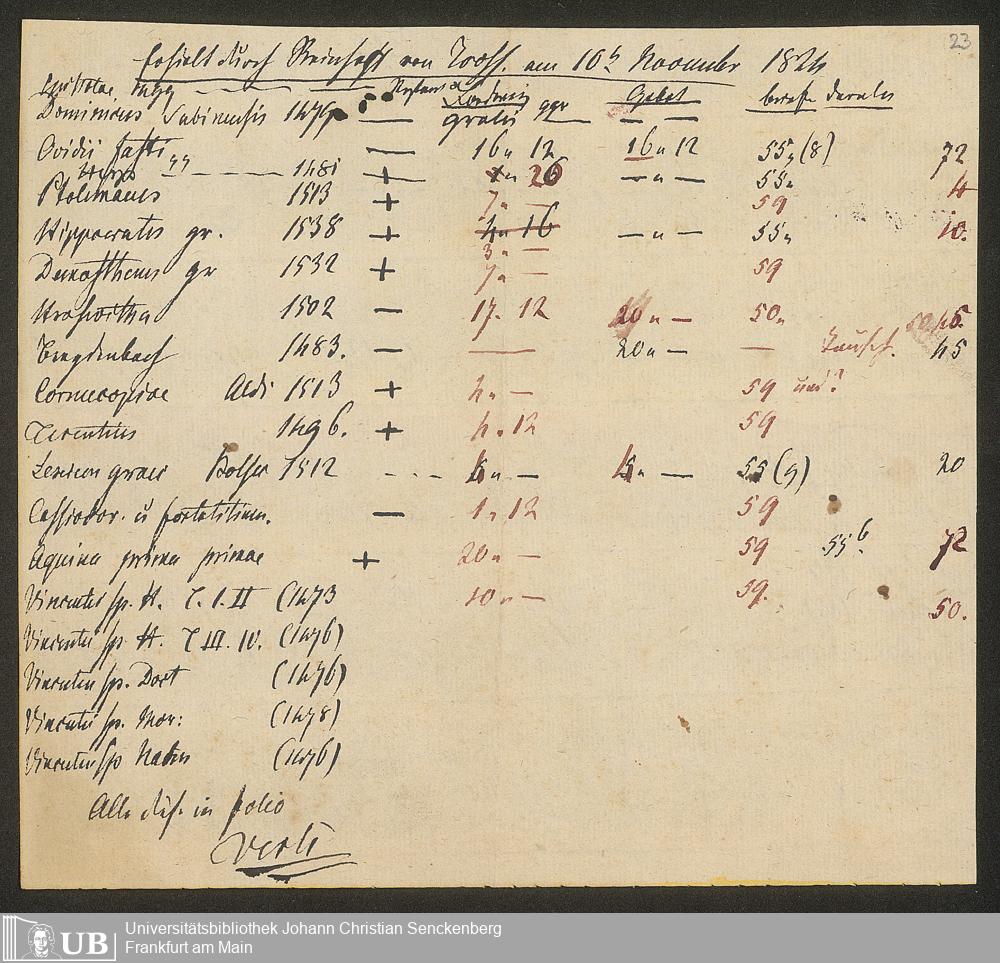 23
Erhielt durch Reinhardt von Tross. am 10t November 1824
Epistolae
Gebot
Dominicus Sabinensis 1479 — gratis ggr — —
Ovidii fasti — 16 „ 12 16 „ 12 55„ (8) 72
1481 + 26 — „ — 55„
Ptolemaeus 1513 + 7„ — 59 4
Hippocratis gr. 1538 + 4„ 16 — „ — 55„ 10.
3„ —
Demosthenes gr 1532 + 7„ — 59
Hrosvitha 1502 — 17. 12 20 „ — 50„ 45.
Breydenbach 1483. — — 20 „ — — Tausch. 45
Cornucopiae Aldi 1513 + 4„ — 59 und?
Terentius 1496. + 4. 12 59
Lexicon graec 1512 - - - 5„ — 5„ — 55 (9) 20
Cassiodor. u fortalitium. — 1„ 12 59
Aquina prima primae + 20„ — 59 55 b. 72
Vincentii sp. H. T. I. II (1473 10 „ — 59. 50.
Vincentii sp. H. T III. IV. (1476)
Vincentii sp. Doct (1476)
Vincentii sp. Mor: (1478)
Vincentii sp Natur (1476)
Alle dies. in folio
verte
Universitätsbibliothek Johann Christian Senckenberg
UB
Frankfurt am Main